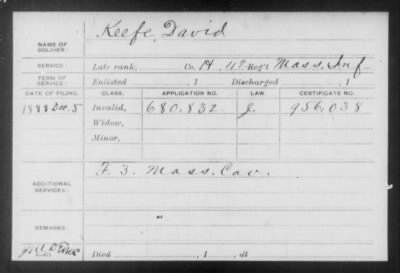 Keefe, David
NAME OF SOLDIER:
SERVICE: Late rank, Co. H. 42 Reg't Mass. Inf
TERM OF SERVICE: Enlisted , 1 Discharged , 1
DATE OF FILING. CLASS. APPLICATION NO. LAW. CERTIFICATE NO.
1888 Dec. 5 Invalid, 680.832 J. 956.038
Widow,
Minor,
ADDITIONAL SERVICES: F. 3. Mass. Cav.
REMARKS:
Died , 1 , at